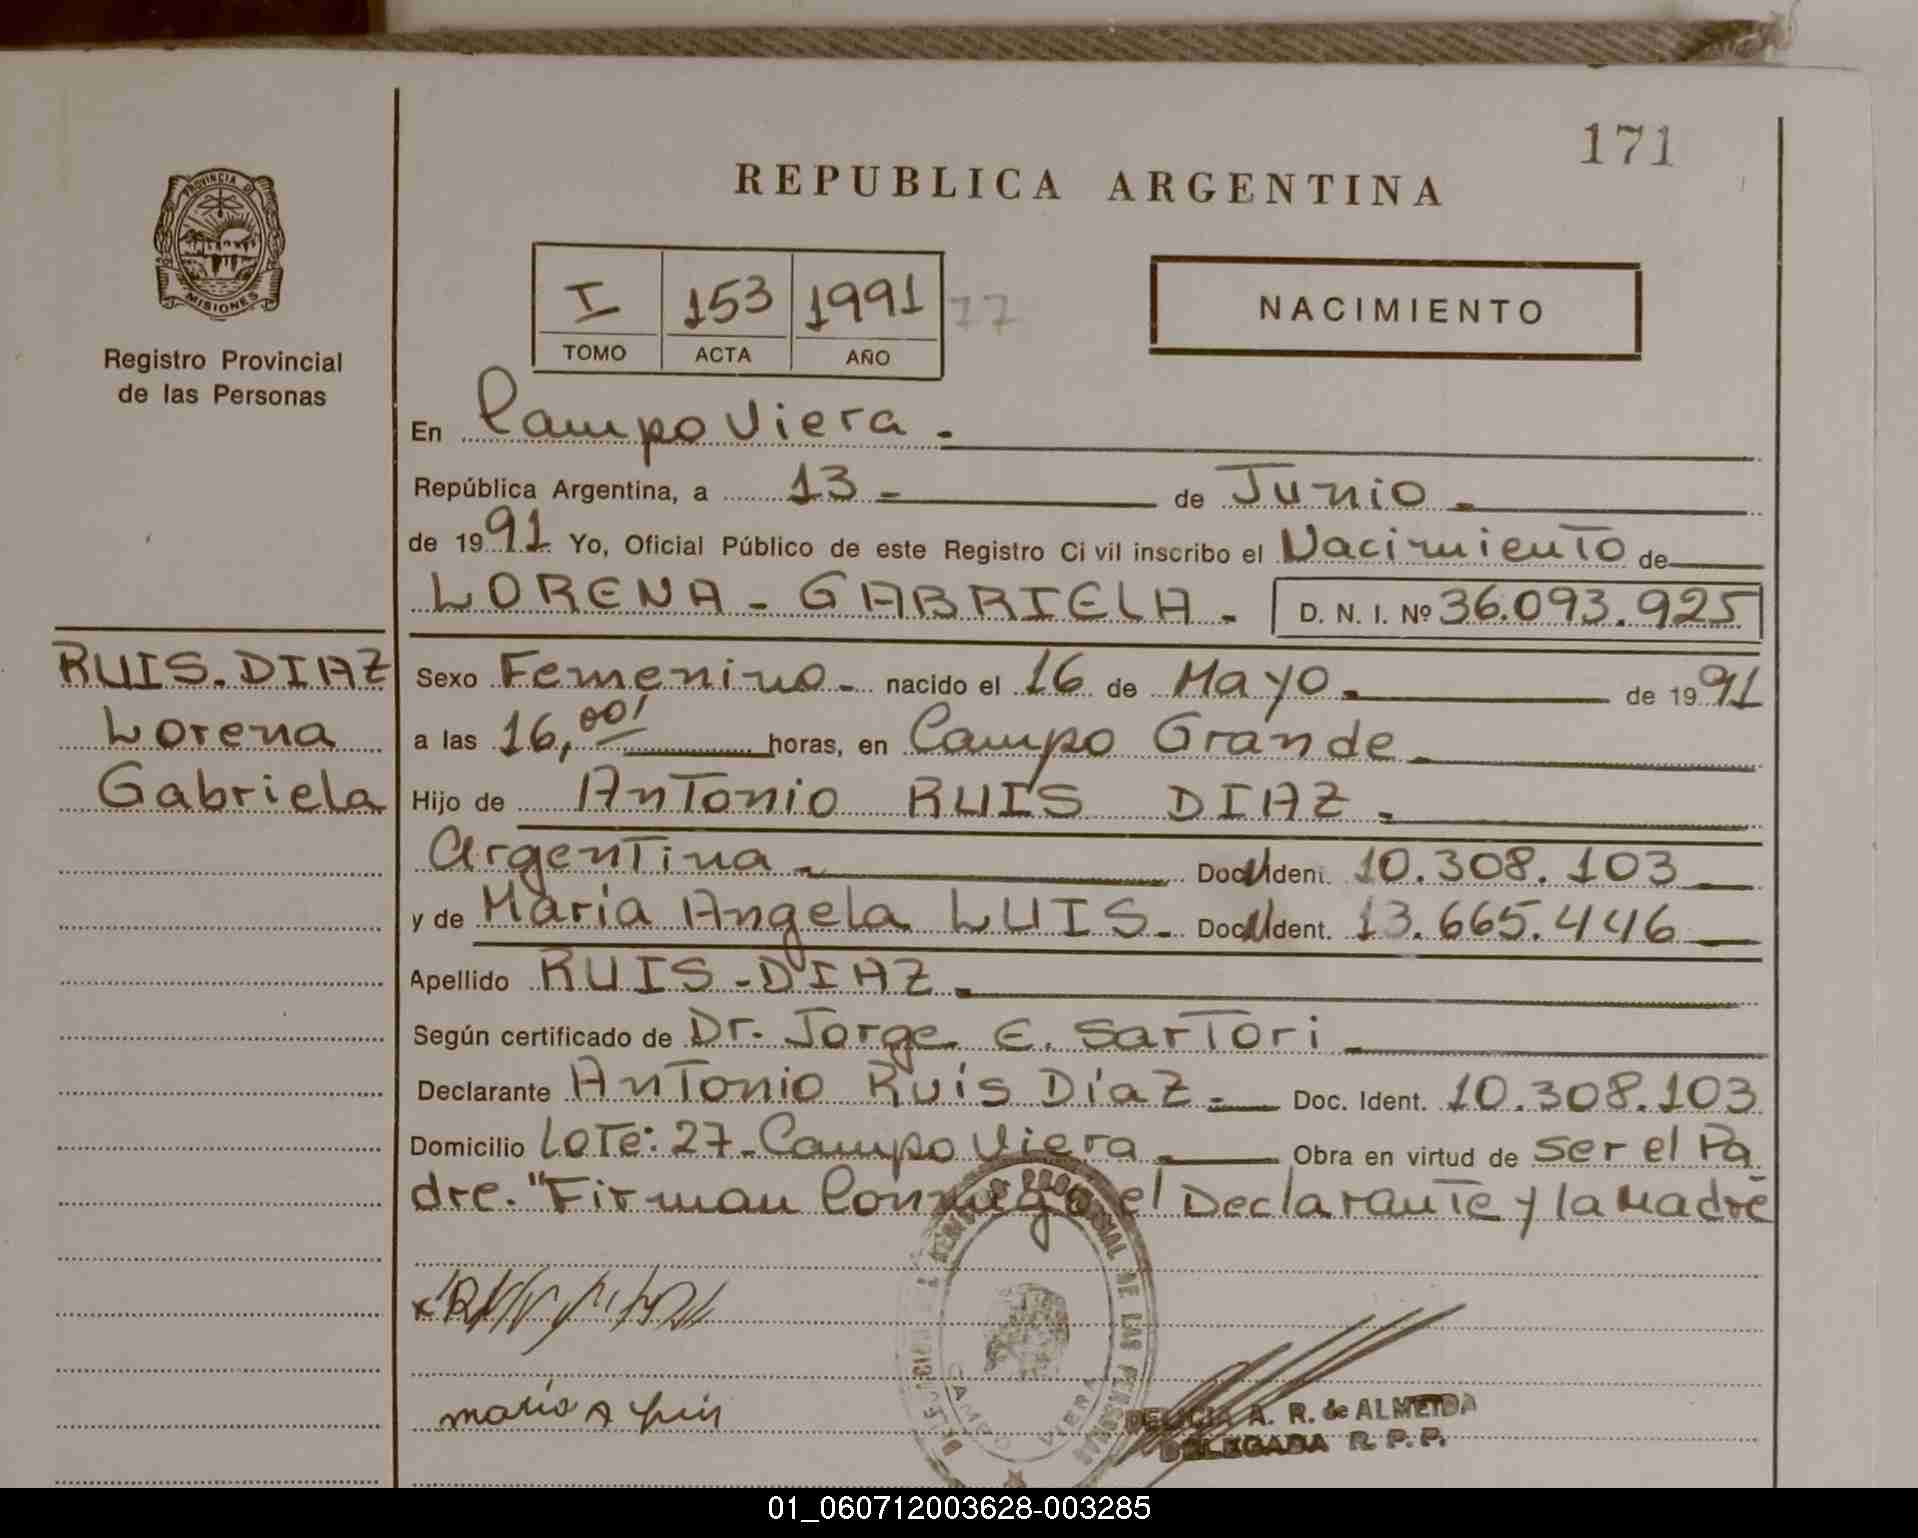 171
REPUBLICA ARGENTINA
PROVINCIA DE
MISIONES
Registro Provincial
de las Personas
I 153 1991 77
TOMO ACTA AÑO
NACIMIENTO
En Campo Viera.
República Argentina, a 13 de Junio
de 1991 Yo, Oficial Público de este Registro Civil inscribo el Nacimiento de
LORENA - GABRIELA - D. N. I. Nº 36.093.925
RUIS. DIAZ
Lorena
Gabriela
Sexo Femenino nacido el 16 de Mayo. de 1991
a las 16,00' horas, en Campo Grande
Hijo de Antonio RUIS DIAZ.
Argentina Doc. Ident. 10.308.103
y de María Angela LUIS. Doc. Ident. 13.665.446
Apellido RUIS - DIAZ
Según certificado de Dr. Jorge E. Sartori
Declarante Antonio Ruís Díaz Doc. Ident. 10.308.103
Domicilio Lote: 27. Campo Viera Obra en virtud de ser el Pa
dre. "Firman Conmigo el Declarante y la Madre
maria A luis
DE LAS PERSONAS
CAMPO VIERA
DELICIA A. R. de ALMEIDA
DELEGADA R. P. P.
01_060712003628-003285